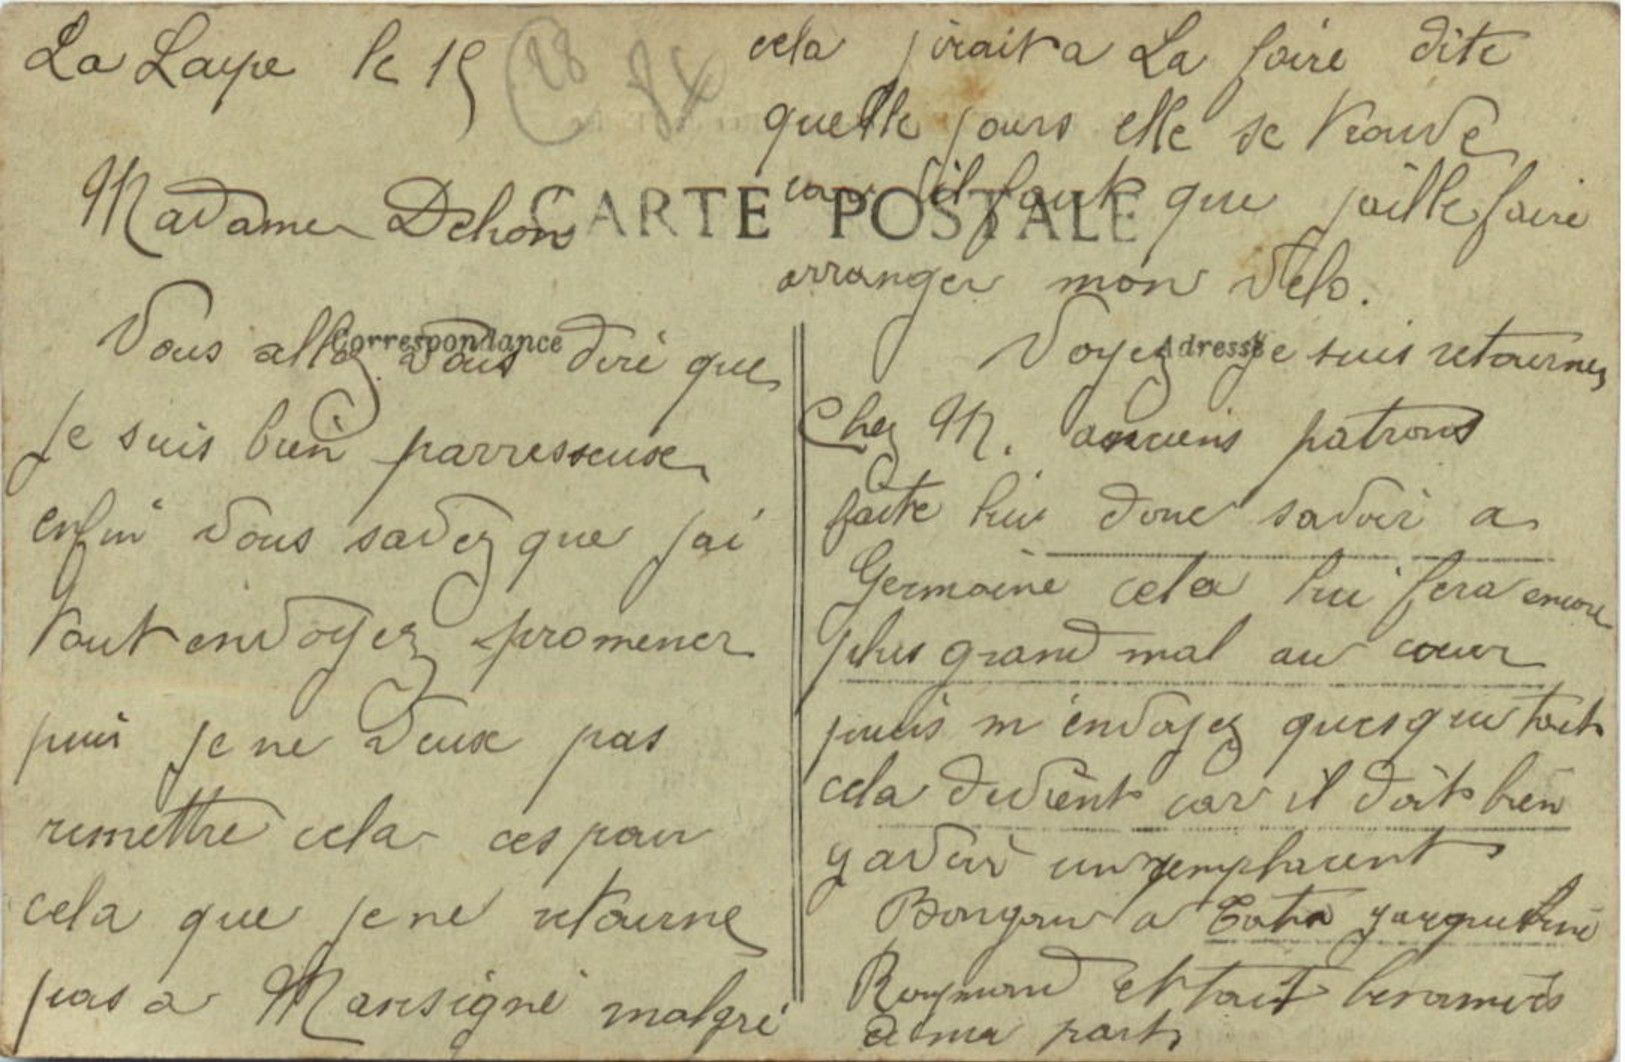 La Laye le 15
Madame Dehon
CARTE POSTALE
Correspondance
Vous allez vous dire que
je suis bien parresseuse
enfin vous savez que jai
tout envoyez promener
puis je ne veux pas
remettre cela ces pour
cela que je ne retourne
pas a Mansigné malgré
cela jirait a La foire dite
quelle jours elle se trouve
car il faut que jaille faire
arranger mon Velo.
Adresse
Voyez je suis retournez
Chez M. anciens patrons
faite lui donc savoir a
Germaine cela lui fera encore
plus grand mal au coeur
puis m'envoyez quesque tout
cela devient car il doit bien
y avoir un remplacent
Bonjour a Tata Jacqueline
Raymond et tout les amies
de ma part